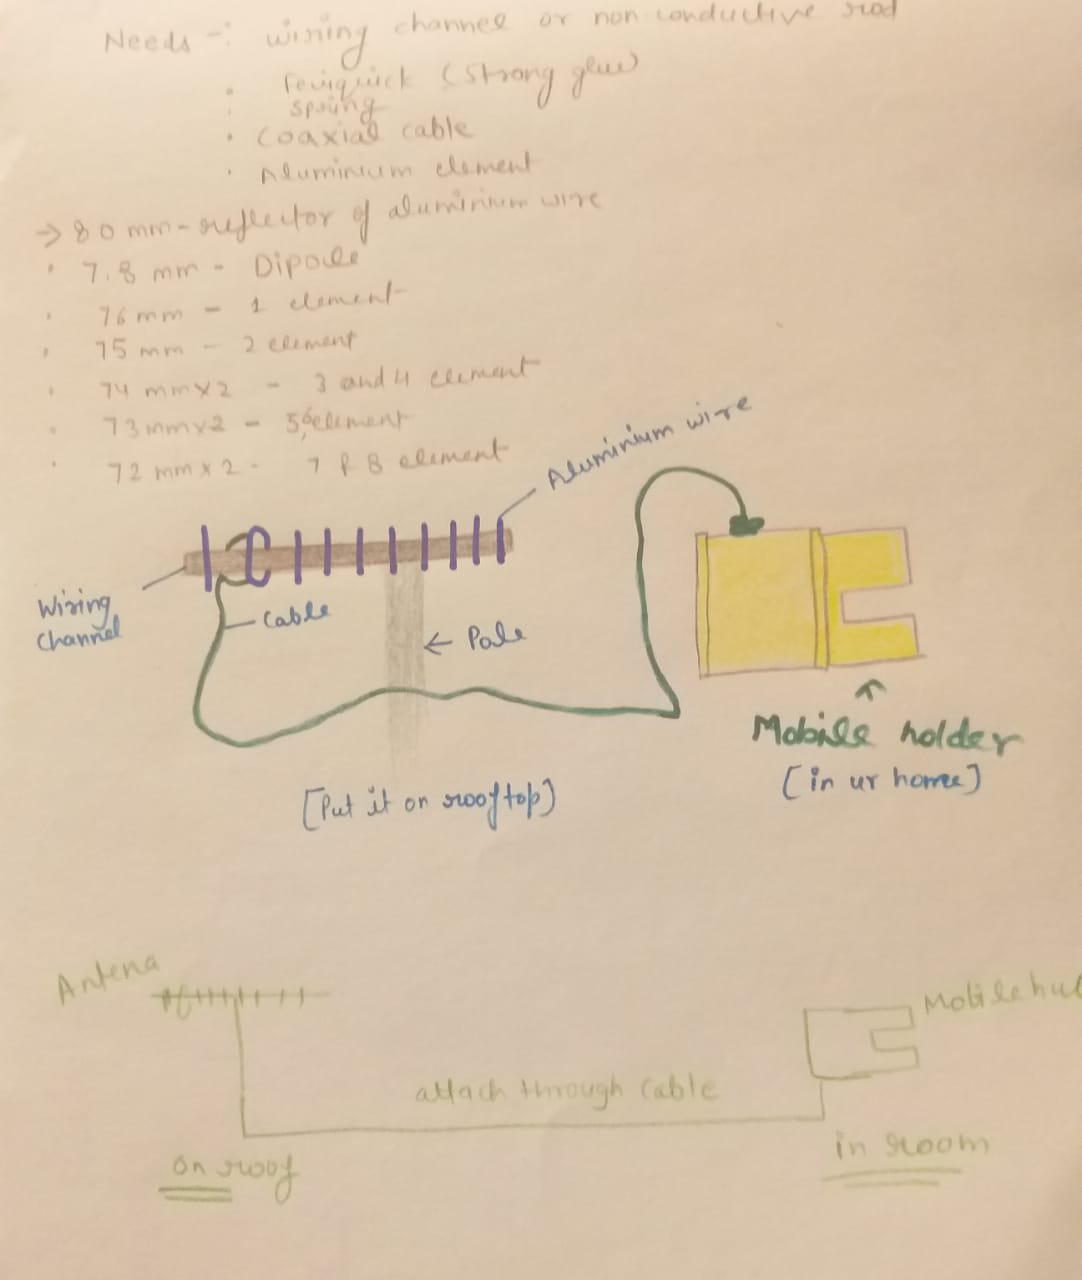 Needs -: wiring channel or non conductive rod
• feviquick (strong glue)
spring
• coaxial cable
• Aluminium element
→ 80 mm - reflector of aluminium wire
• 7.8 mm - Dipole
• 76 mm - 1 element
• 75 mm - 2 element
• 74 mm x 2 - 3 and 4 element
• 73 mm x 2 - 5,6 element
• 72 mm x 2 - 7 & 8 element
Aluminium wire
Wiring channel
Cable
← Pole
Mobile holder
[in ur home]
[Put it on rooftop]
Antena
Mobile
attach through cable
on roof
in room